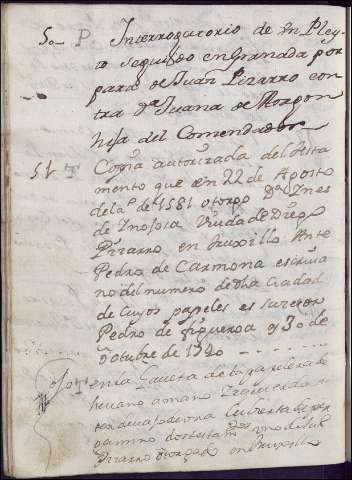 50 P Interrogatorio de un Pley-
to seguido en Granada por
parte de Juan Pizarro con
tra Dª Juana de Aragon
hija del Comendador
51 T Copia autorizada del Testa
mento que en 22 de Agosto
de la º de 1581 otorgo Dª Ynes
de Ynojosa Viuda de Diego
Pizarro en truxillo Ante
Pedro de Carmona escriva
no del numero de dha Ciudad
de cuyos papeles es sucesor
Pedro de figueroa y 30 de
octubre de 1740
T en la Gaveta de la papelera de
hevano a mano Yzquierda
cubierta de per
gamino
Pizarro otorgado en truxillo